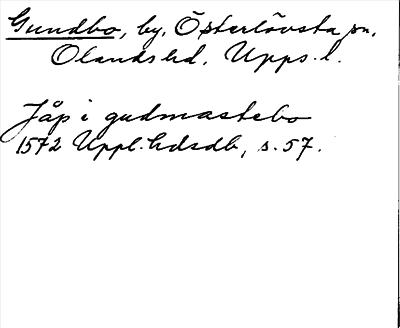 Gundbo, by, Österlövsta sn.
Olands hd. Upps. l.
Jåp i gudmastebo
1572 Uppl. hdsdb, s. 57.